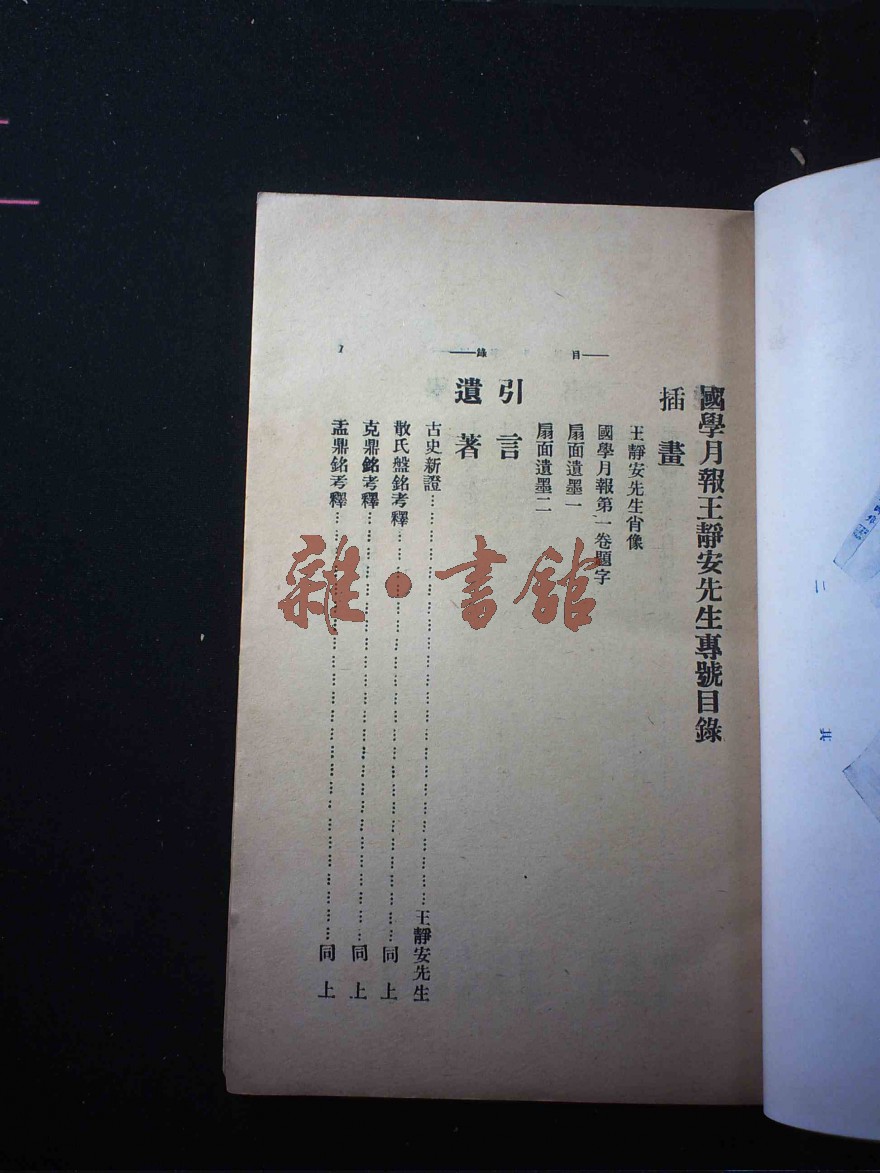 國學月報王靜安先生專號目錄
插畫
王靜安先生肖像
國學月報第一卷題字
扇面遺墨一
扇面遺墨二
引言
遺著
古史新證……王靜安先生
散氏盤銘考釋……同上
克鼎銘考釋……同上
盂鼎銘考釋……同上
目錄
1
雜·書館